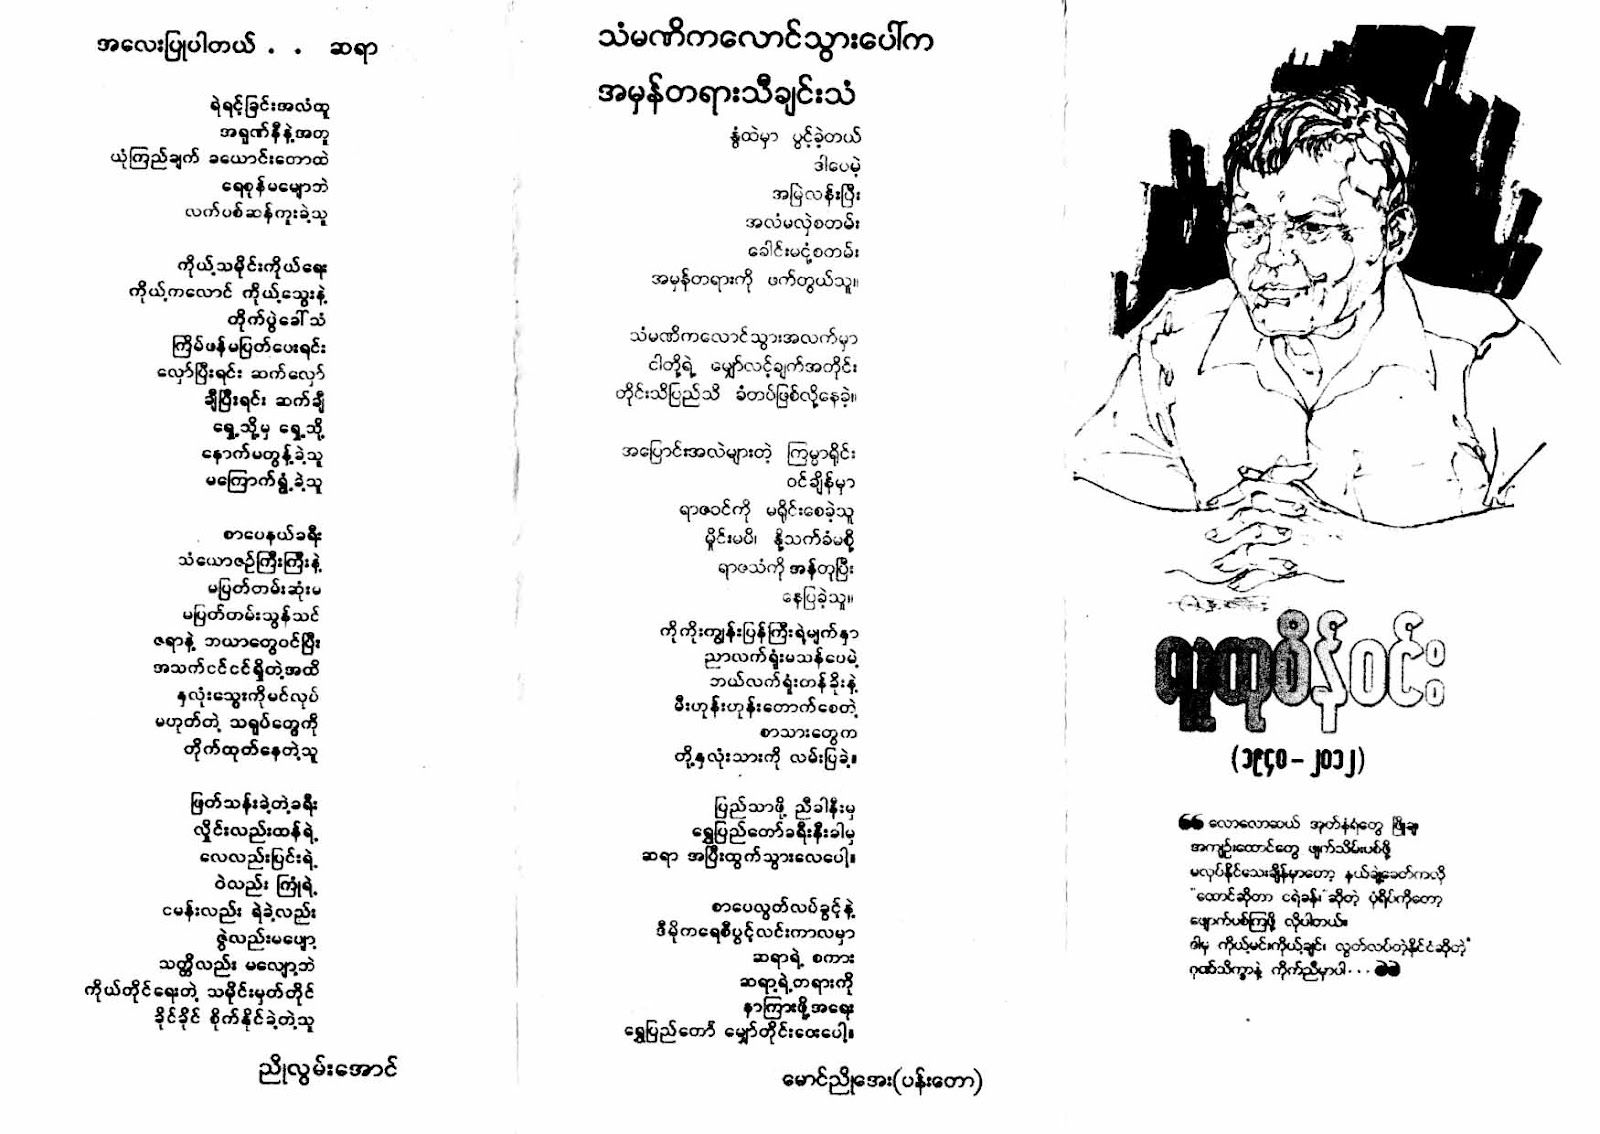 အလေးပြုပါတယ် . . ဆရာ
ရဲရင့်ခြင်းအလံထူ
အရုဏ်နီနဲ့အတူ
ယုံကြည်ချက် ခယောင်းတောထဲ
ရေစုန်မမျောဘဲ
လက်ပစ်ဆန်ကူးခဲ့သူ
ကိုယ့်သမိုင်းကိုယ်ရေး
ကိုယ့်ကလောင် ကိုယ့်သွေးနဲ့
တိုက်ပွဲခေါ်သံ
ကြိမ်ဖန်မပြတ်ပေးရင်း
လှော်ပြီးရင်း ဆက်လှော်
ချီပြီးရင်း ဆက်ချီ
ရှေ့သို့မှ ရှေ့သို့
နောက်မတွန့်ခဲ့သူ
မကြောက်ရွံ့ခဲ့သူ
စာပေနယ်ခရီး
သံယောဇဉ်ကြီးကြီးနဲ့
မပြတ်တမ်းဆုံးမ
မပြတ်တမ်းသွန်သင်
ဇရာနဲ့ ဘယာတွေဝင်ပြီး
အသက်ငင်ငင်ရှိတဲ့အထိ
နှလုံးသွေးကိုမင်လုပ်
မဟုတ်တဲ့ သရုပ်တွေကို
တိုက်ထုတ်နေတဲ့သူ
ဖြတ်သန်းခဲ့တဲ့ခရီး
လှိုင်းလည်းထန်ရဲ့
လေလည်းပြင်းရဲ့
ဝဲလည်း ကြုံရဲ့
ငမန်းလည်း ရဲခဲ့လည်း
ဇွဲလည်းမပျော့
သတ္တိလည်း မလျော့ဘဲ
ကိုယ်တိုင်ရေးတဲ့ သမိုင်းမှတ်တိုင်
ခိုင်ခိုင် စိုက်နိုင်ခဲ့တဲ့သူ
ညိုလွမ်းအောင်
သံမဏိကလောင်သွားပေါ်က
အမှန်တရားသီချင်းသံ
နွံထဲမှာ ပွင့်ခဲ့တယ်
ဒါပေမဲ့
အမြဲလန်းပြီး
အလံမလှဲစတမ်း
ခေါင်းမငုံ့စတမ်း
အမှန်တရားကို ဖက်တွယ်သူ။
သံမဏိကလောင်သွားအလက်မှာ
ငါတို့ရဲ့ မျှော်လင့်ချက်အတိုင်း
တိုင်းသိပြည်သိ ခံတပ်ဖြစ်လို့နေခဲ့။
အပြောင်းအလဲများတဲ့ ကြမ္မာရိုင်း
ဝင်ချိန်မှာ
ရာဇဝင်ကို မရိုင်းစေခဲ့သူ
မှိုင်းမပိ၊ နို့သက်ခံမစို့
ရာဇသံကို အန်တုပြီး
နေပြခဲ့သူ။
ကိုကိုးကျွန်းပြန်ကြီးရဲ့မျက်နှာ
ညာလက်ရုံးမသန်ပေမဲ့
ဘယ်လက်ရုံးတန်ခိုးနဲ့
မီးဟုန်းဟုန်းတောက်စေတဲ့
စာသားတွေက
တို့နှလုံးသားကို လမ်းပြခဲ့။
ပြည်သာဖို့ ညီခါနီးမှ
ရွှေပြည်တော်ခရီးနီးခါမှ
ဆရာ အပြီးထွက်သွားလေပေါ့။
စာပေလွတ်လပ်ခွင့်နဲ့
ဒီမိုကရေစီပွင့်လင်းကာလမှာ
ဆရာရဲ့ စကား
ဆရာ့ရဲ့တရားကို
နာကြားဖို့အရေး
ရွှေပြည်တော် မျှော်တိုင်းဝေးပေါ့။
မောင်ညိုအေး(ပန်းတော)
လူထုစိန်ဝင်း
(၁၉၄၀ – ၂၀၁၂)
❝ လောလောဆယ် အုတ်နံရံတွေ ဖြိုချ
အကျဉ်းထောင်တွေ ဖျက်သိမ်းပစ်ဖို့
မလုပ်နိုင်သေးချိန်မှာတော့ နယ်ချဲ့ခေတ်ကလို
"ထောင်ဆိုတာ ငရဲခန်း"ဆိုတဲ့ ပုံရိပ်ကိုတော့
ဖျောက်ပစ်ကြဖို့ လိုပါတယ်။
ဒါမှ ကိုယ့်မင်းကိုယ့်ချင်း လွတ်လပ်တဲ့နိုင်ငံဆိုတဲ့"
ဂုဏ်သိက္ခာနဲ့ ကိုက်ညီမှာပါ . . . ❞